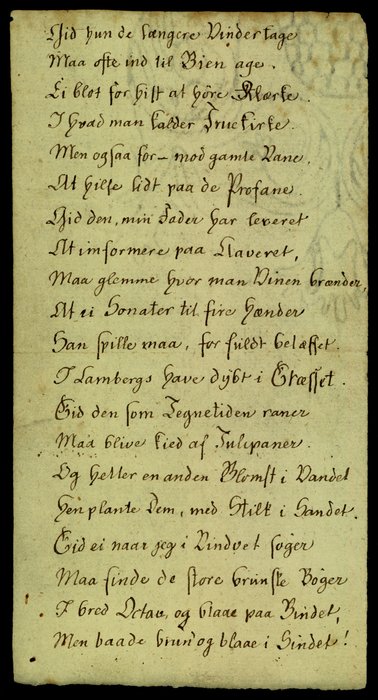 Gid hun de længere Vinterdage
Maa ofte ind til Byen age.
Ei blot for hist at høre Klærke
I hvad man kalder Fruekirke.
Men ogsaa for – mod gamle Vane,
At hilse lidt paa de Profane.
Gid den, min Fader har leveret
At imformere paa Klaveret,
Maa glemme hvor man Vinen brænder,
At ei Sonater til fire Hænder
Han spille maa, for fuldt belæsset.
I Lambergs Have dybt i Græsset.
Gid den som Tegnetiden raner
Maa blive kied af Tulipaner.
Og heller en anden Blomst i Vandet
Hen plante Dem, med Stilk i Sandet.
Gid ei naar jeg i Vinduet søger
Maa finde de store brunste Bøger
I bred Octav, og blaae paa Bindet,
Men baade brun og blaae i Sindet!